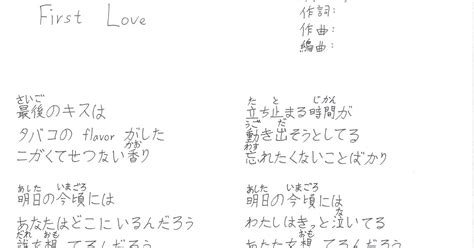 First Love
作詞:
作曲:
編曲:
さいご
最後のキスは
タバコの flavor がした
かお
ニガくてせつない香り
あした いまごろ
明日の今頃には
あなたはどこにいるんだろう
だれ おも
誰を想ってるんだろう
た ど じかん
立ち止まる時間が
うご だ
動き出そうとしてる
わす
忘れたくないことばかり
あした いまごろ
明日の今頃には
な
わたしはきっと泣いてる
おも
あなたを想ってるんだろう